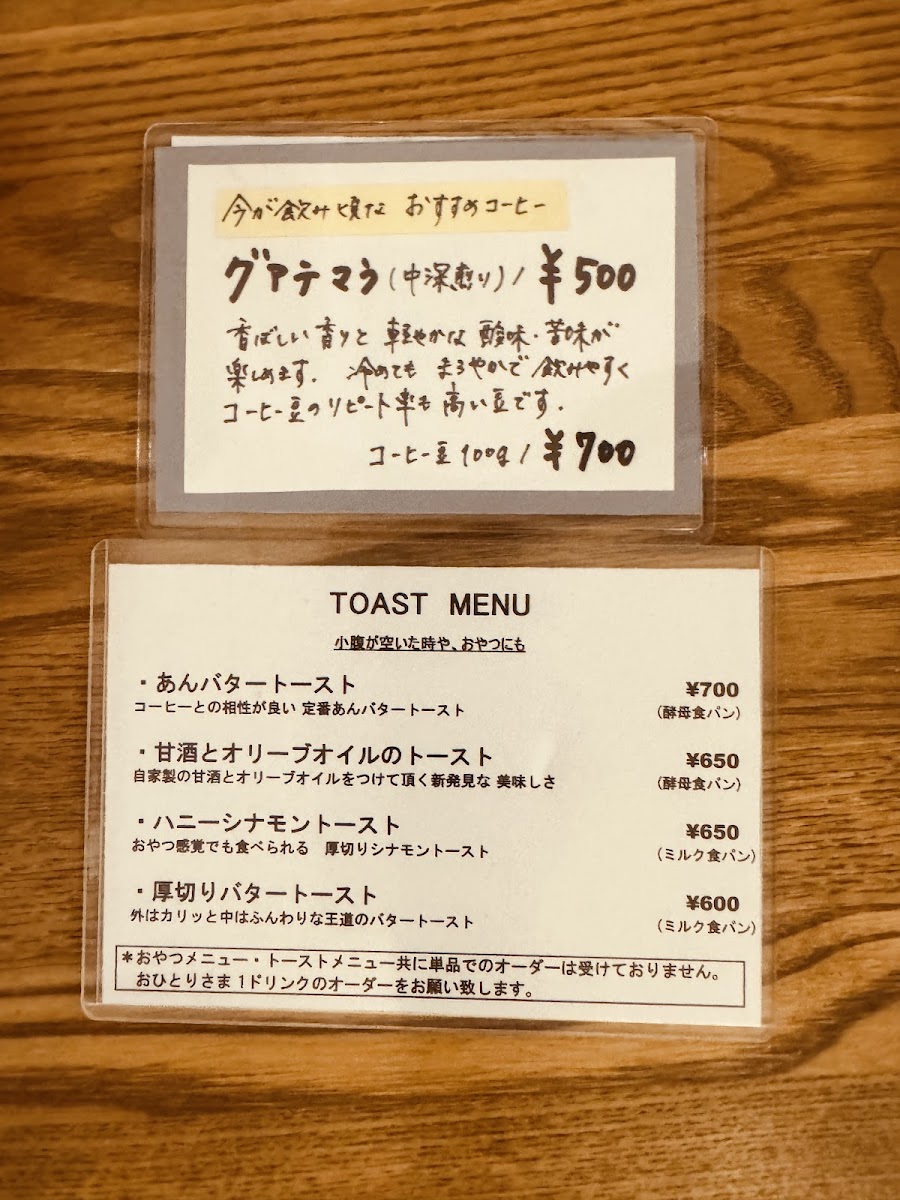 今が飲み頃な おすすめコーヒー
グアテマラ(中深煎り)/¥500
香ばしい香りと 軽やかな 酸味・苦味が
楽しめます. 冷めても まろやかで 飲みやすく
コーヒー豆のリピート率も 高い豆です.
コーヒー豆 100g/¥700
TOAST MENU
小腹が空いた時や、おやつにも
・あんバタートースト ¥700
コーヒーとの相性が良い 定番あんバタートースト (酵母食パン)
・甘酒とオリーブオイルのトースト ¥650
自家製の甘酒とオリーブオイルをつけて頂く新発見な 美味しさ (酵母食パン)
・ハニーシナモントースト ¥650
おやつ感覚でも食べられる 厚切りシナモントースト (ミルク食パン)
・厚切りバタートースト ¥600
外はカリッと中はふんわりな王道のバタートースト (ミルク食パン)
*おやつメニュー・トーストメニュー共に単品でのオーダーは受けておりません。
おひとりさま 1ドリンクのオーダーをお願い致します。